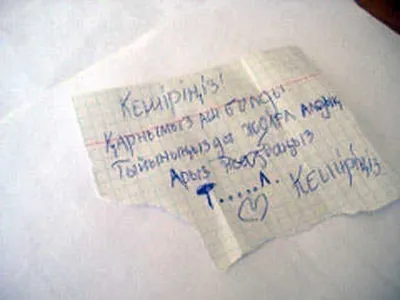 Кешіріңіз!
Қарнымыз аш болды
Тыйыныңызды алдық
Арыз жазбаңыз
Т.....Л.
Кешіріңіз